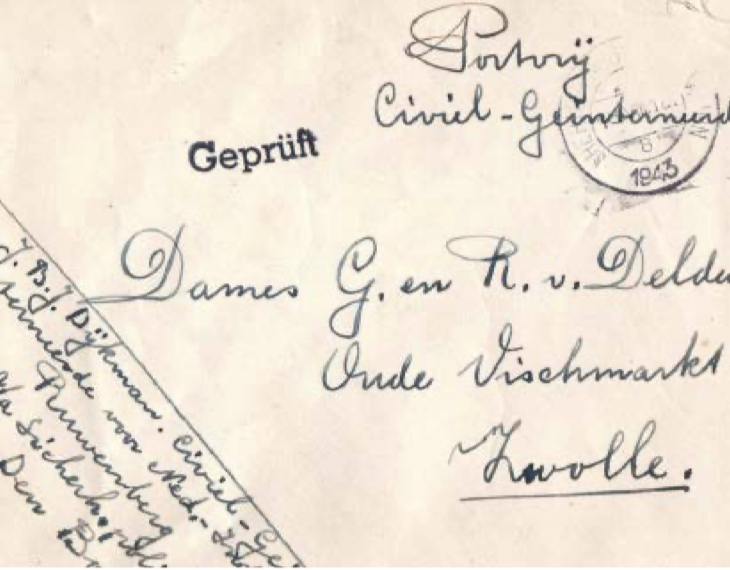 Portvrij
Civiel-Geinterneerd
Geprüft
1943
Dames G. en R. v. Delde
Oude Vischmarkt
Zwolle.
J. B. J. Dijkman. Civiel-Ge
interneerde voor Ned.-
Ruwenberg
p/a Sicherh. pol.
Den B